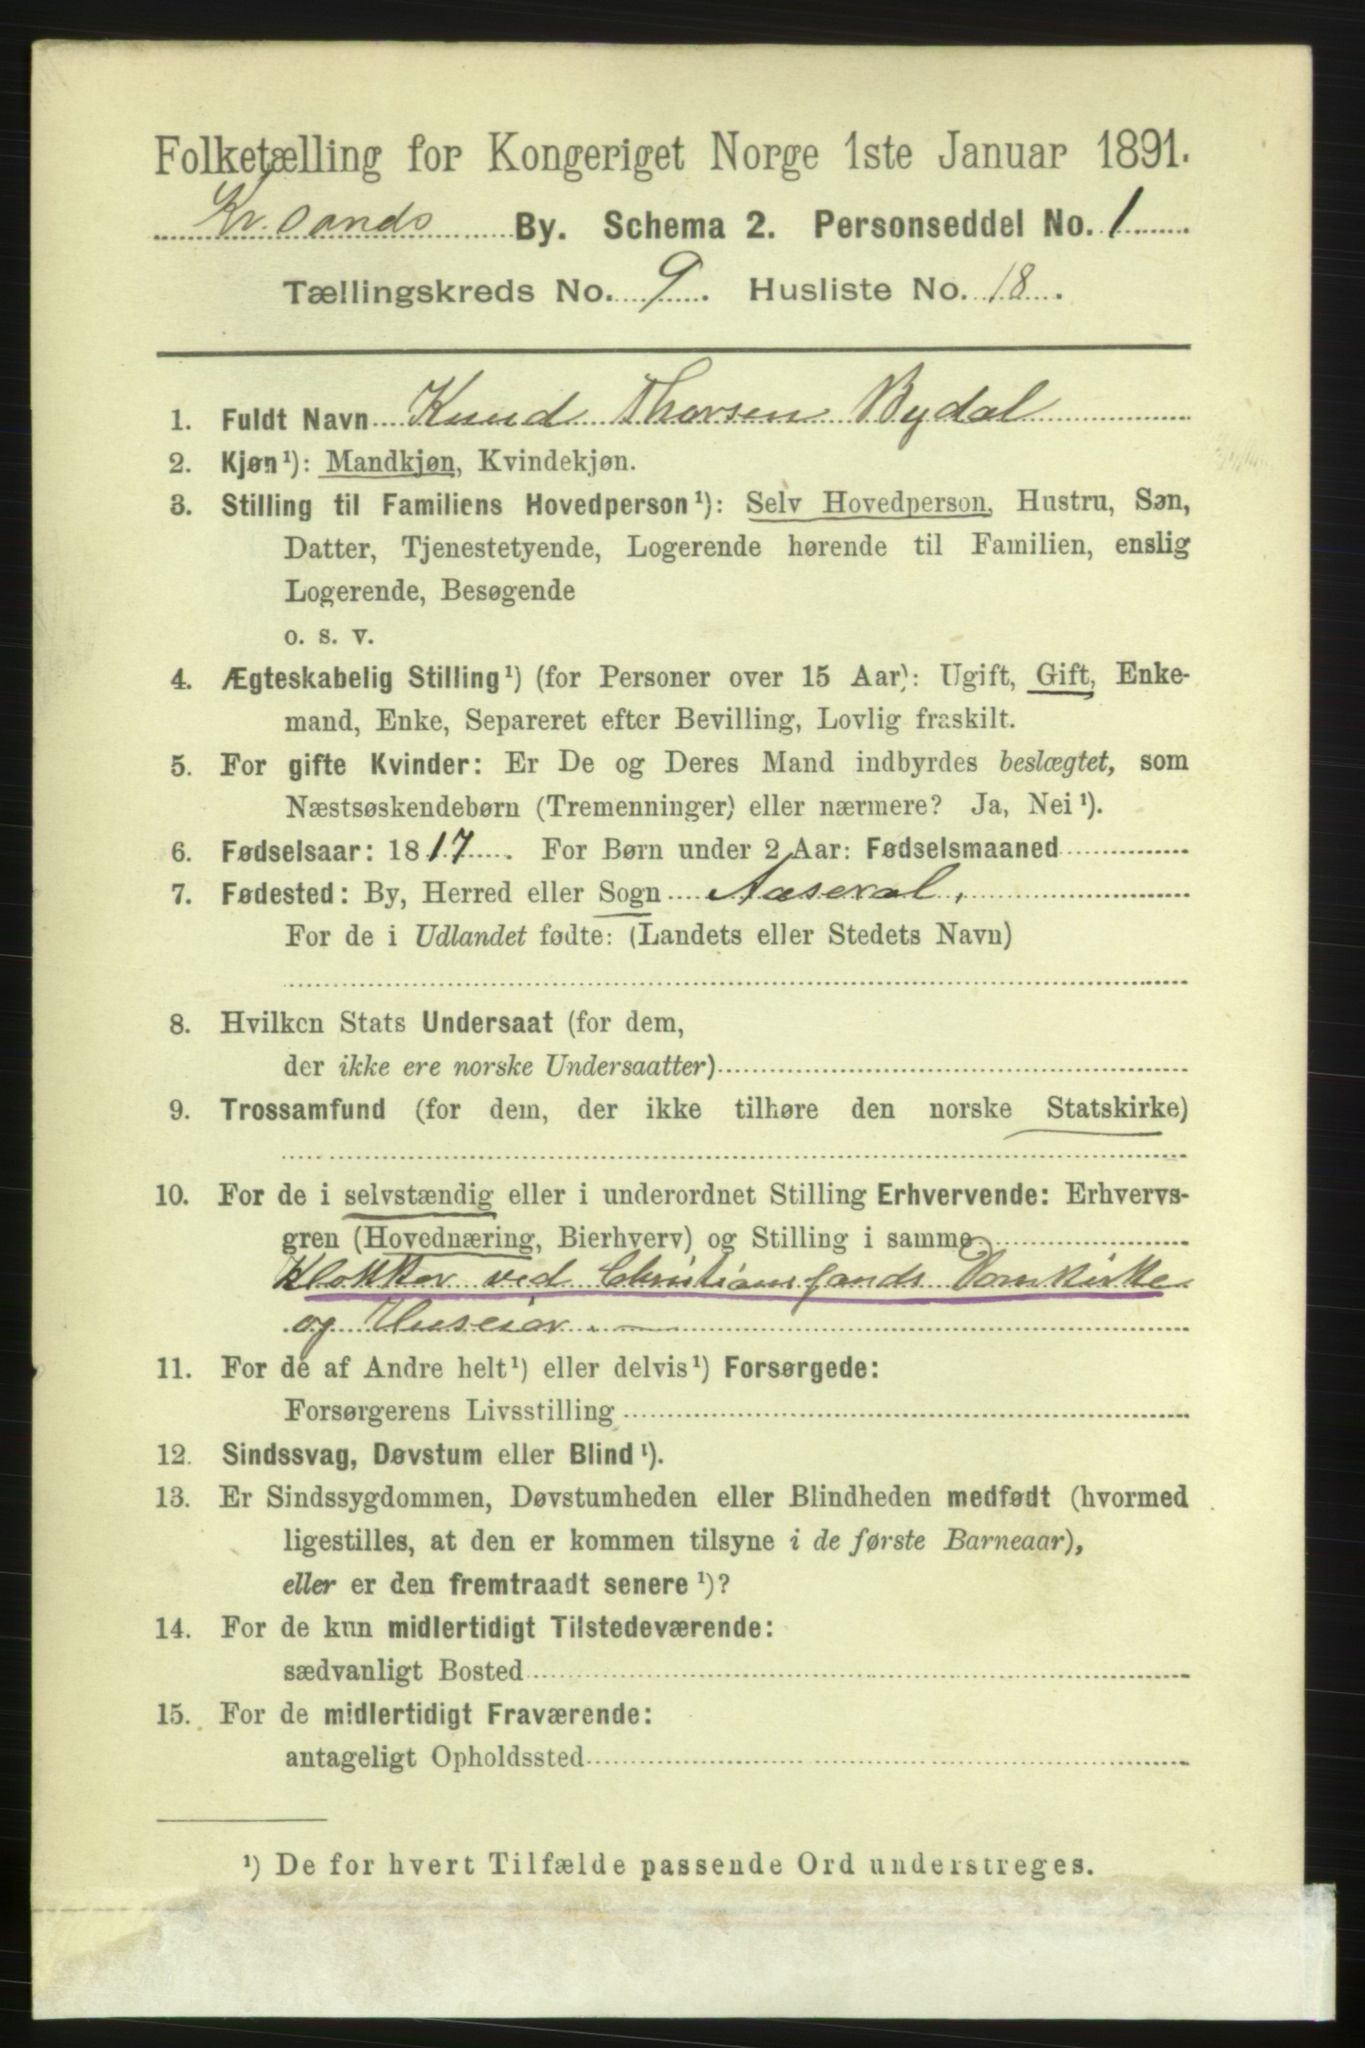 Folketælling for Kongeriget Norge 1ste Januar 1891.
Kr.sands By. Schema 2. Personseddel No. 1
Tællingskreds No. 9. Husliste No. 18.
1. Fuldt Navn Knud Thorsen Bydal
2. Kjøn¹): Mandkjøn, Kvindekjøn.
3. Stilling til Familiens Hovedperson¹): Selv Hovedperson, Hustru, Søn,
Datter, Tjenestetyende, Logerende hørende til Familien, enslig
Logerende, Besøgende
o. s. v.
4. Ægteskabelig Stilling¹) (for Personer over 15 Aar): Ugift, Gift, Enke-
mand, Enke, Separeret efter Bevilling, Lovlig fraskilt.
5. For gifte Kvinder: Er De og Deres Mand indbyrdes beslægtet, som
Næstsøskendebørn (Tremenninger) eller nærmere? Ja, Nei¹).
6. Fødselsaar: 1817. For Børn under 2 Aar: Fødselsmaaned
7. Fødested: By, Herred eller Sogn Aaseral.
For de i Udlandet fødte: (Landets eller Stedets Navn)
8. Hvilken Stats Undersaat (for dem,
der ikke ere norske Undersaatter)
9. Trossamfund (for dem, der ikke tilhøre den norske Statskirke)
10. For de i selvstændig eller i underordnet Stilling Erhvervende: Erhvervs-
gren (Hovednæring, Bierhverv) og Stilling i samme
Klokker ved Christianssands Domkirke
og Huseier.
11. For de af Andre helt¹) eller delvis¹) Forsørgede:
Forsørgerens Livsstilling
12. Sindssvag, Døvstum eller Blind¹).
13. Er Sindssygdommen, Døvstumheden eller Blindheden medfødt (hvormed
ligestilles, at den er kommen tilsyne i de første Barneaar),
eller er den fremtraadt senere¹)?
14. For de kun midlertidigt Tilstedeværende:
sædvanligt Bosted
15. For de midlertidigt Fraværende:
antageligt Opholdssted
¹) De for hvert Tilfælde passende Ord understreges.